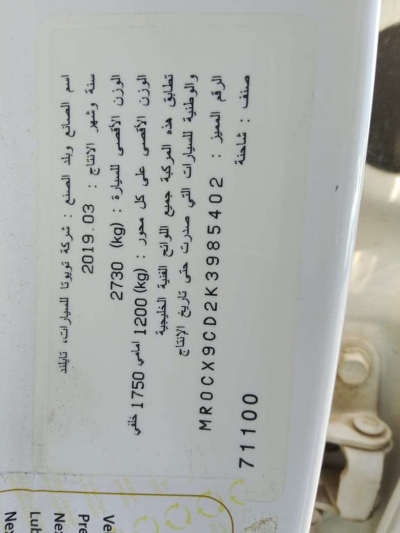 اسم الصانع وبلد الصنع : شركة تويوتا للسيارات، تايلند
سنة وشهر الإنتاج : 2019.03
الوزن الأقصى للسيارة : (kg) 2730
الوزن الأقصى على كل محور : (kg) 1200 امامي 1750 خلفي
تطابق هذه المركبة جميع اللوائح الفنية الخليجية
والوطنية للسيارات التي صدرت حتى تاريخ الإنتاج
الرقم المميز : MR0CX9CD2K3985402
صنف : شاحنة
71100
Ve
Pre
Ne
Lub
Nex